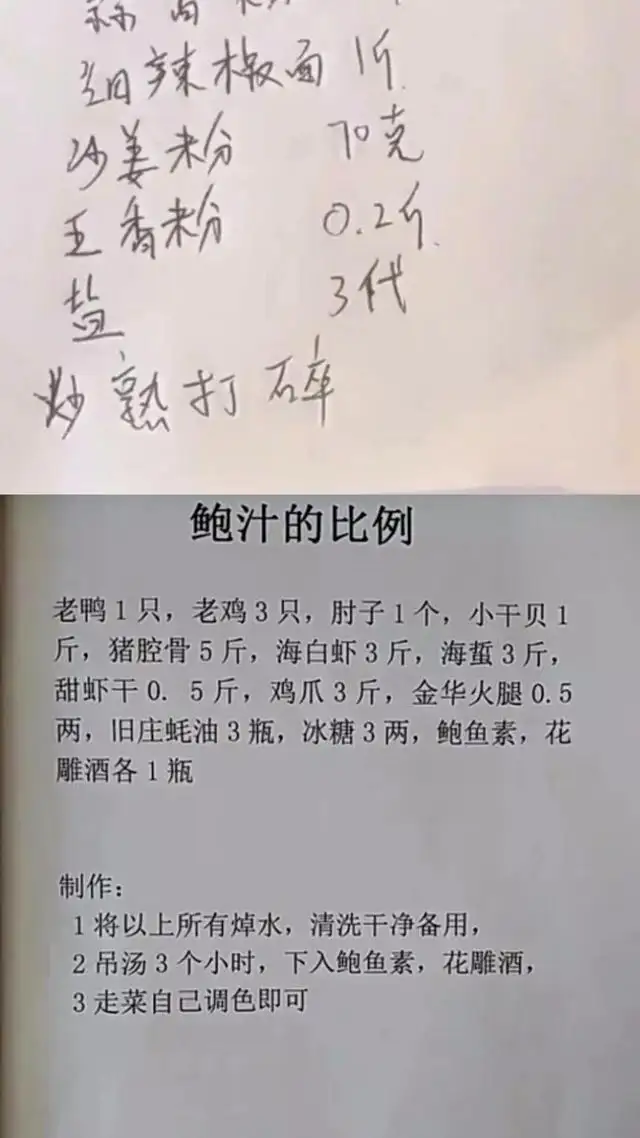 细辣椒面 1斤
沙姜粉 70克
五香粉 0.2斤
盐 3代
炒熟打碎
鲍汁的比例
老鸭1只，老鸡3只，肘子1个，小干贝1
斤，猪腔骨5斤，海白虾3斤，海蜇3斤，
甜虾干0. 5斤，鸡爪3斤，金华火腿0.5
两，旧庄蚝油3瓶，冰糖3两，鲍鱼素，花
雕酒各1瓶
制作：
1将以上所有焯水，清洗干净备用，
2吊汤3个小时，下入鲍鱼素，花雕酒，
3走菜自己调色即可